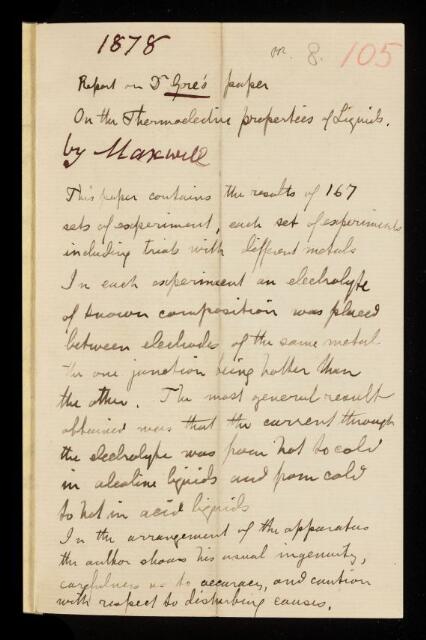 1878
m. 8. 105
Report on Dr Gore's paper
On the Thermoelectric properties of Liquids.
by Maxwell
This paper contains the results of 167
sets of experiment, each set of experiments
including trials with different metals
In each experiment an electrolyte
of known composition was placed
between electrodes of the same metal
the one junction being hotter than
the other. The most general result
obtained was that the current through
the electrolyte was from hot to cold
in alcaline liquids and from cold
to hot in acid liquids
In the arrangement of the apparatus
the author shows his usual ingenuity,
carefulness as to accuracy, and caution
with respect to disturbing causes.